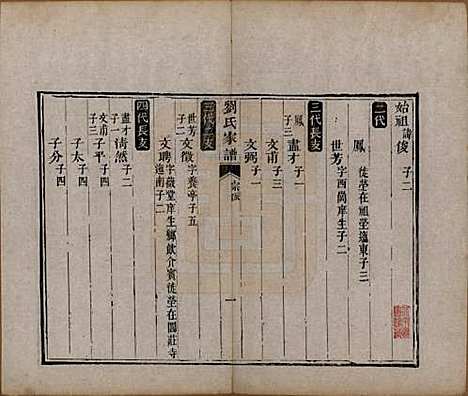 始祖諱俊 子二
二代
鳳 徙塋在祖塋迤東子三
世芳 字西尚庠生子二
三代長支
鳳子三
晝才 子一
文甫 子三
文弼 子一
劉氏家譜
宗派
一
三代二支
世芳子二
文徵 字養亭子五
文聘 字薇堂庠生鄉飲介賓徙塋在閻莊寺迤南子二
四代長支
晝才子一
清然 子二
文甫子三
子平 子四
子太 子四
子分 子四